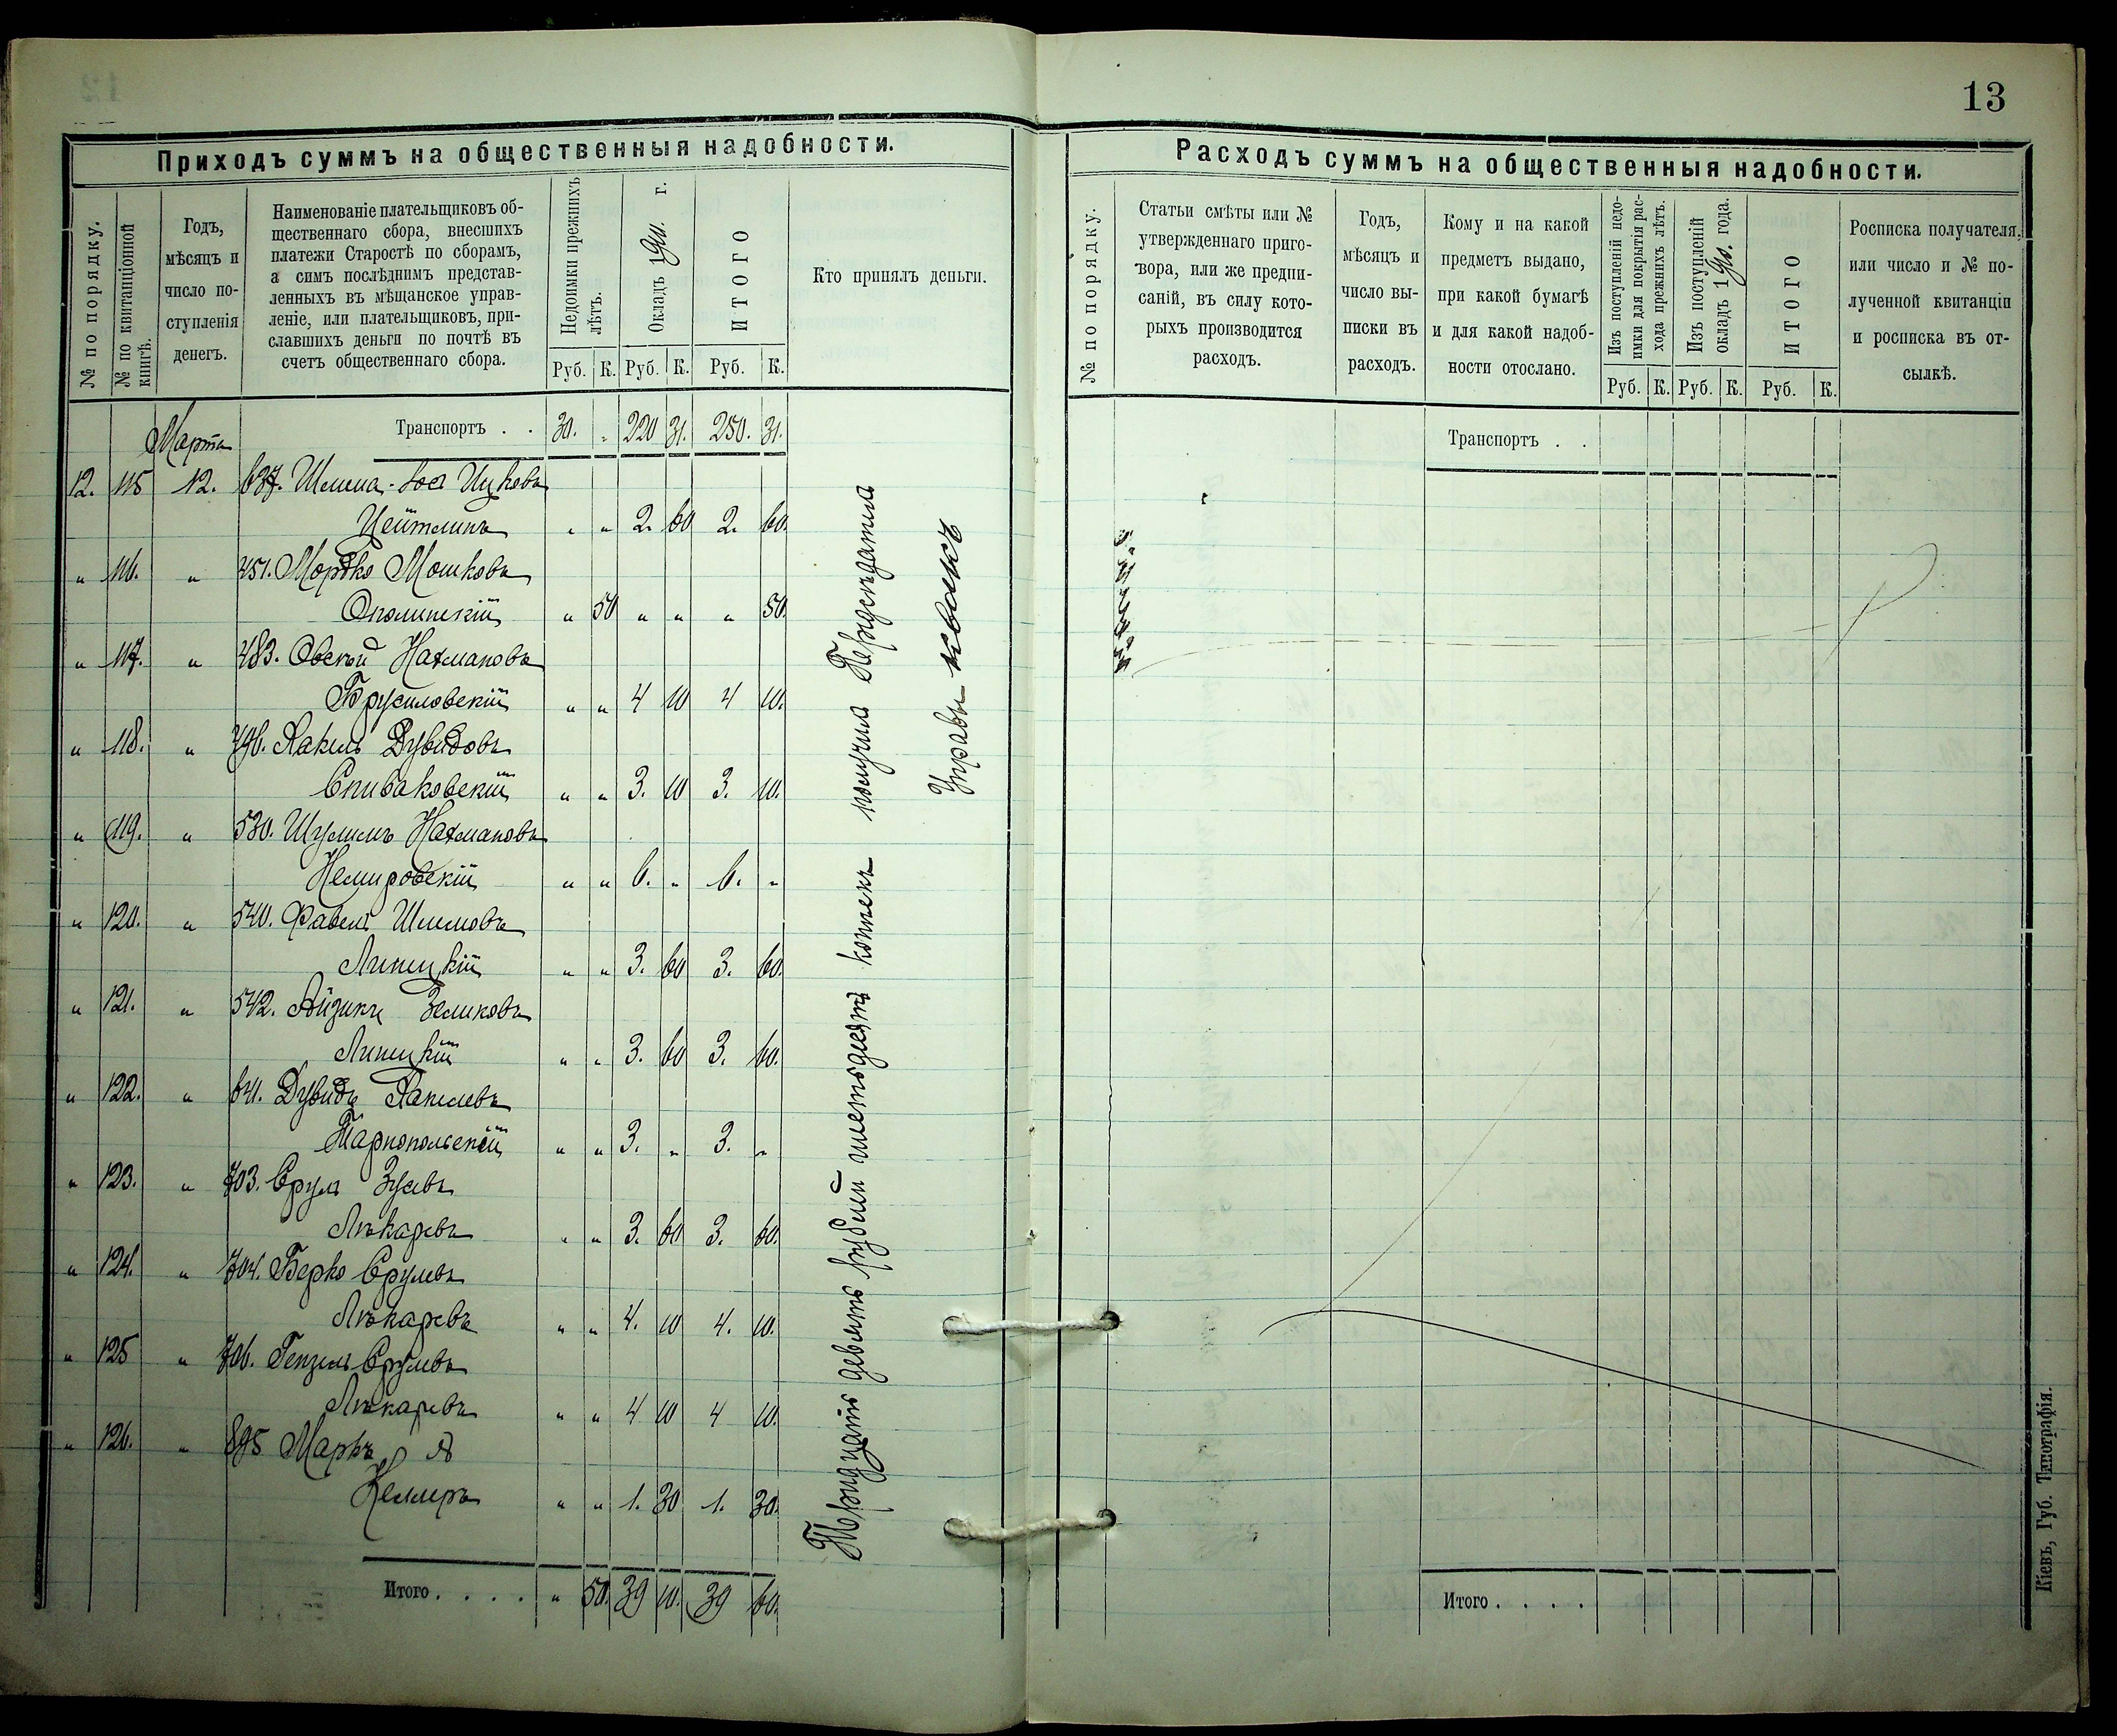 13
Приходъ суммъ на общественныя надобности.
№ по порядку.
№ по квитанціонной книгѣ.
Годъ, мѣсяцъ и число поступленія денегъ.
Наименованіе плательщиковъ об-
щественнаго сбора, внесшихъ
платежи Старостѣ по сборамъ,
а симъ послѣднимъ представ-
ленныхъ въ мѣщанское управ-
леніе, или плательщиковъ, при-
славшихъ деньги по почтѣ въ
счетъ общественнаго сбора.
Недоимки прежнихъ лѣтъ.
Окладъ 19 г.
ИТОГО
Кто принялъ деньги.
Руб. К. Руб. К. Руб. К.
Транспортъ . . 30. „ 220 31. 250. 31.
Марта
12. 115 12. 637. Шлема-Іос Ицковъ
Цейтлинъ „ „ 2. 60 2. 60.
„ 116. „ 451. Мордко Мошковъ
Ополинскій „ 50 „ „ „ 50.
„ 117. „ 483. Овсей Нахмановъ
Брусиловскій „ „ 4 10 4 10.
„ 118. „ 796. Хакель Дувидовъ
Спиваковскій „ „ 3. 10 3. 10.
„ 119. „ 530. Шулимъ Нахмановъ
Немировскій „ „ 6. „ 6. „
„ 120. „ 540. Файвель Шлемовъ
Липецкій „ „ 3. 60 3. 60.
„ 121. „ 542. Айзикъ Зеликовъ
Липецкій „ „ 3. 60 3. 60.
„ 122. „ 641. Дувидъ Хакелевъ
Тарнопольскій „ „ 3. „ 3. „
„ 123. „ 703. Сруль Зусевъ
Лѣкаревъ „ „ 3. 60 3. 60.
„ 124. „ 704. Берко Срулевъ
Лѣкаревъ „ „ 4. 10 4. 10.
„ 125 „ 706. Гензель Срулевъ
Лѣкаревъ „ „ 4 10 4 10.
„ 126. „ 895 Маркъ
Келлеръ „ „ 1. 30 1. 30.
Итого . . . . „ 50. 39 10. 39 60.
Тридцать девять рублей шестьдесятъ копѣекъ получилъ Предсѣдатель
Управы
Расходъ суммъ на общественныя надобности.
№ по порядку.
Статьи смѣты или №
утвержденнаго приго-
вора, или же предпи-
саній, въ силу кото-
рыхъ производится
расходъ.
Годъ,
мѣсяцъ и
число вы-
писки въ
расходъ.
Кому и на какой
предметъ выдано,
при какой бумагѣ
и для какой надоб-
ности отослано.
Изъ поступленій недо-
имки для покрытія рас-
хода прежнихъ лѣтъ.
Изъ поступленій
окладъ 19 года.
ИТОГО
Росписка получателя,
или число и № по-
лученной квитанціи
и росписка въ от-
сылкѣ.
Руб. К. Руб. К. Руб. К.
Транспортъ . .
Итого . . . .
Кіевъ, Губ. Типографія.